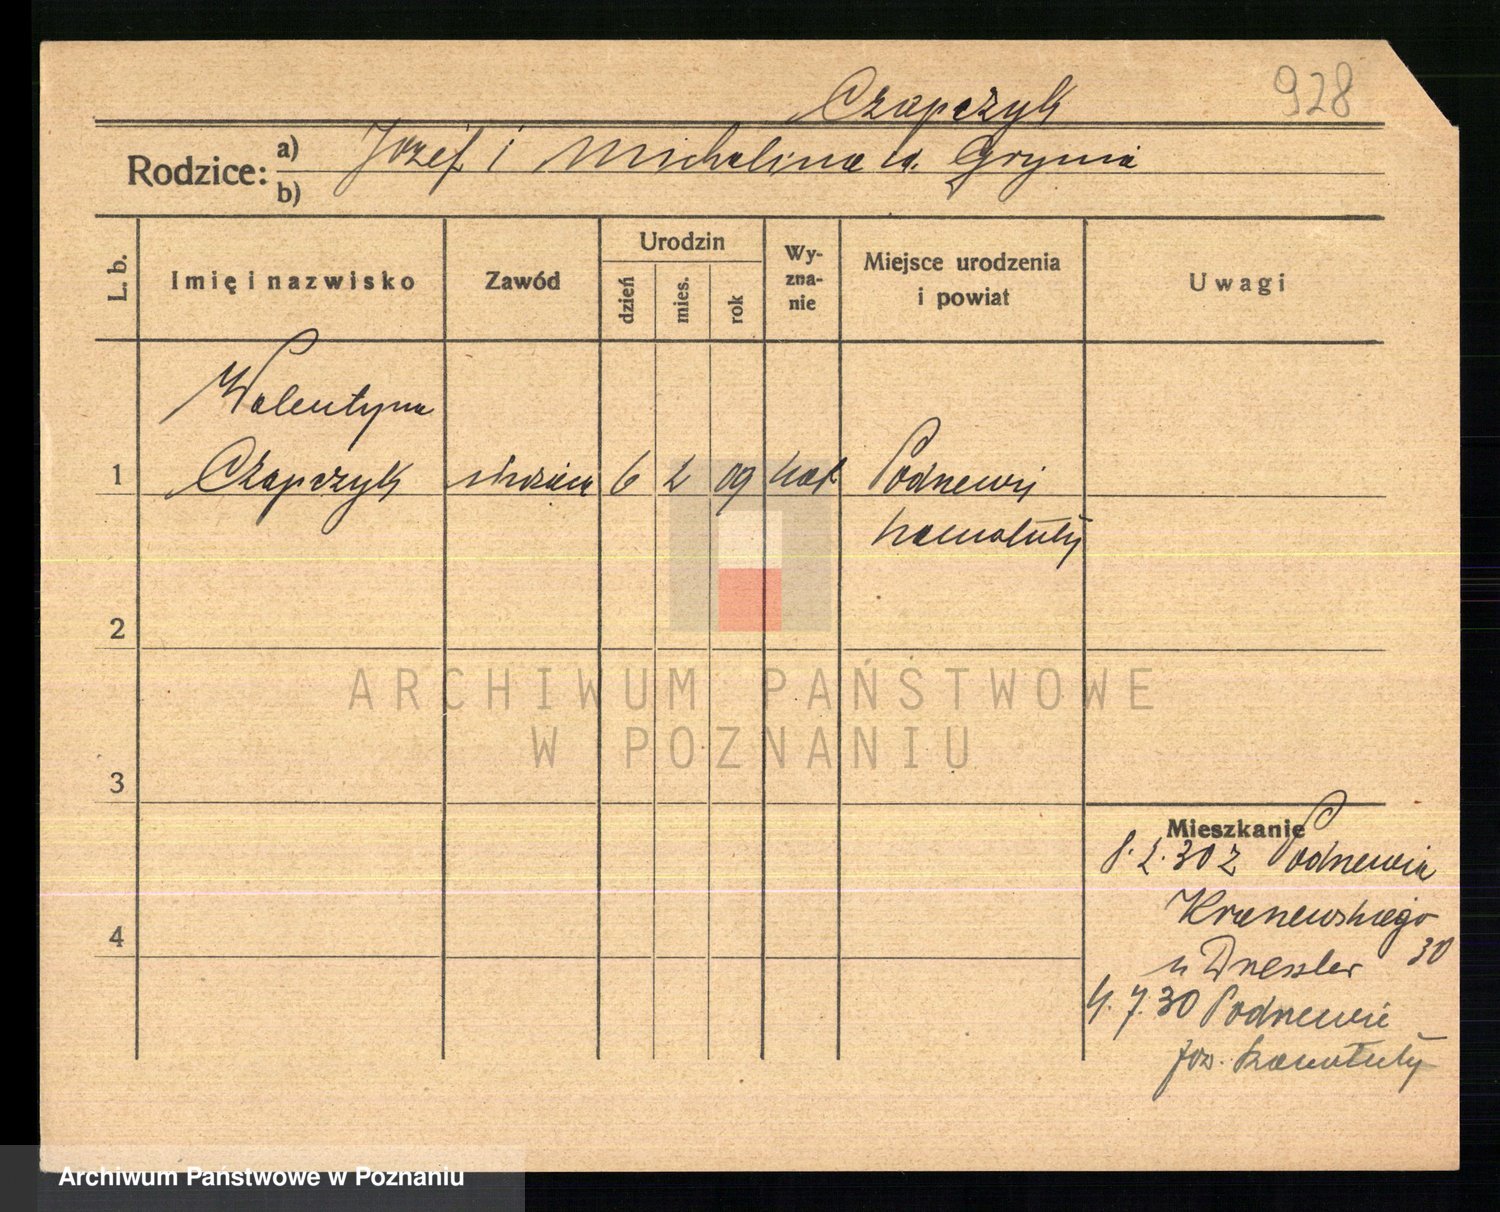 Czapczyk
928
Rodzice:
a) Józef i Michalina z d. Grynia
b)
L. b.
Imię i nazwisko
Zawód
Urodzin
dzień
mies.
rok
Wy-
zna-
nie
Miejsce urodzenia
i powiat
Uwagi
Walentyna
1 Czapczyk 6 2 09 kat Podrzewie
Szamotuły
2
ARCHIWUM PAŃSTWOWE
W POZNANIU
3
Mieszkanie
8.2.30 z Podrzewia
30
4
4.7.30 Podrzewie
pow. Szamotuły
Archiwum Państwowe w Poznaniu